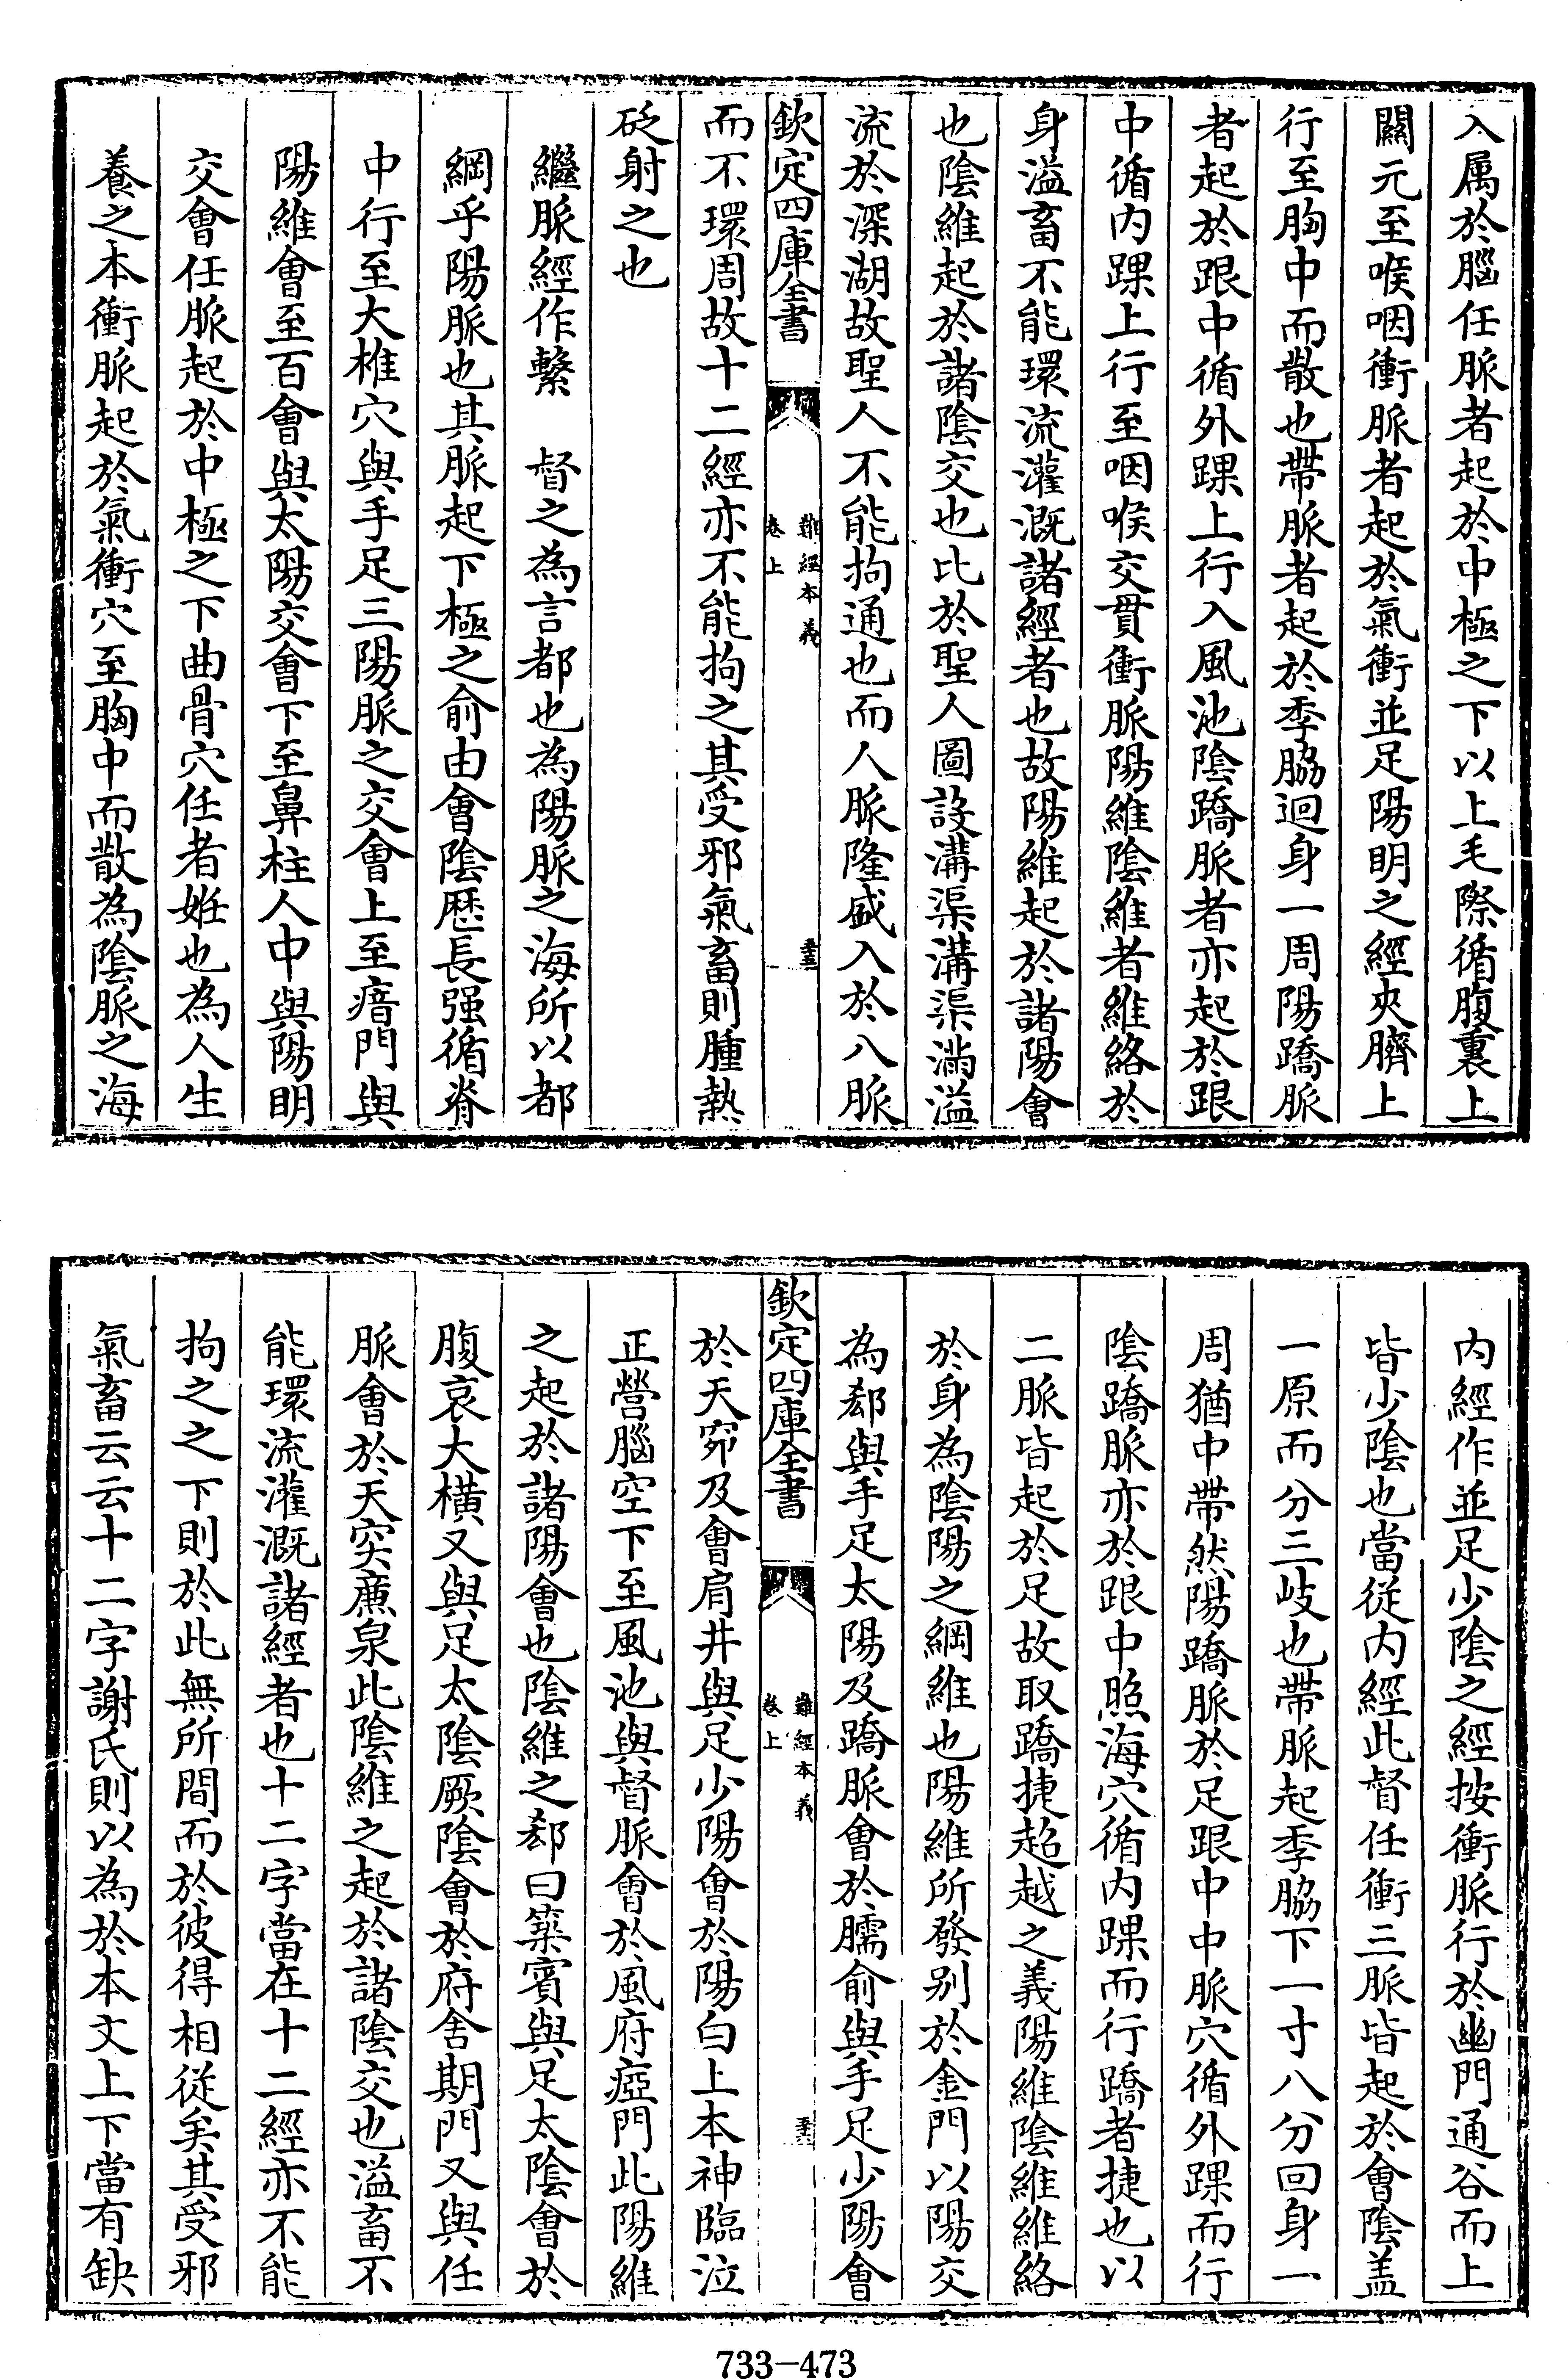 入属於腦任脈者起於中極之下以上毛際循腹裏上
關元至喉咽衝脈者起於氣衝並足陽明之經夾臍上
行至胸中而散也帶脈者起於季脇迴身一周陽蹻脈
者起於跟中循外踝上行入風池陰蹻脈者亦起於跟
中循内踝上行至咽喉交貫衝脈陽維陰維者維絡於
身溢畜不能環流灌溉諸經者也故陽維起於諸陽會
也陰維起於諸陰交也比於聖人圖設溝渠溝渠滿溢
流於深湖故聖人不能拘通也而人脈隆盛入於八脈
欽定四庫全書
難經本義
卷上
而不環周故十二經亦不能拘之其受邪氣畜則腫熱
砭射之也
繼脈經作繫　督之為言都也為陽脈之海所以都
綱乎陽脈也其脈起下極之俞由會陰歴長强循脊
中行至大椎穴與手足三陽脈之交會上至瘖門與
陽維會至百會與太陽交會下至鼻柱人中與陽明
交會任脈起於中極之下曲骨穴任者妊也為人生
養之本衝脈起於氣衝穴至胸中而散為陰脈之海
内經作並足少陰之經按衝脈行於幽門通谷而上
皆少陰也當從内經此督任衝三脈皆起於會陰盖
一原而分三岐也帶脈起季脇下一寸八分回身一
周猶中帶然陽蹻脈於足跟中中脈穴循外踝而行
陰蹻脈亦於跟中照海穴循内踝而行蹻者捷也以
二脈皆起於足故取蹻捷超越之義陽維陰維維絡
於身為陰陽之綱維也陽維所發别於金門以陽交
為郄與手足太陽及蹻脈會於臑俞與手足少陽會
欽定四庫全書
難經本義
卷上
於天窌及會肩井與足少陽會於陽白上本神臨泣
正營腦空下至風池與督脈會於風府瘂門此陽維
之起於諸陽會也陰維之郄曰築賓與足太陰會於
腹哀大横又與足太陰厥陰會於府舍期門又與任
脈會於天突廉泉此陰維之起於諸陰交也溢畜不
能環流灌溉諸經者也十二字當在十二經亦不能
拘之之下則於此無所間而於彼得相從矣其受邪
氣畜云云十二字謝氏則以為於本文上下當有缺
733—473